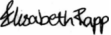 Elisabeth Rapp